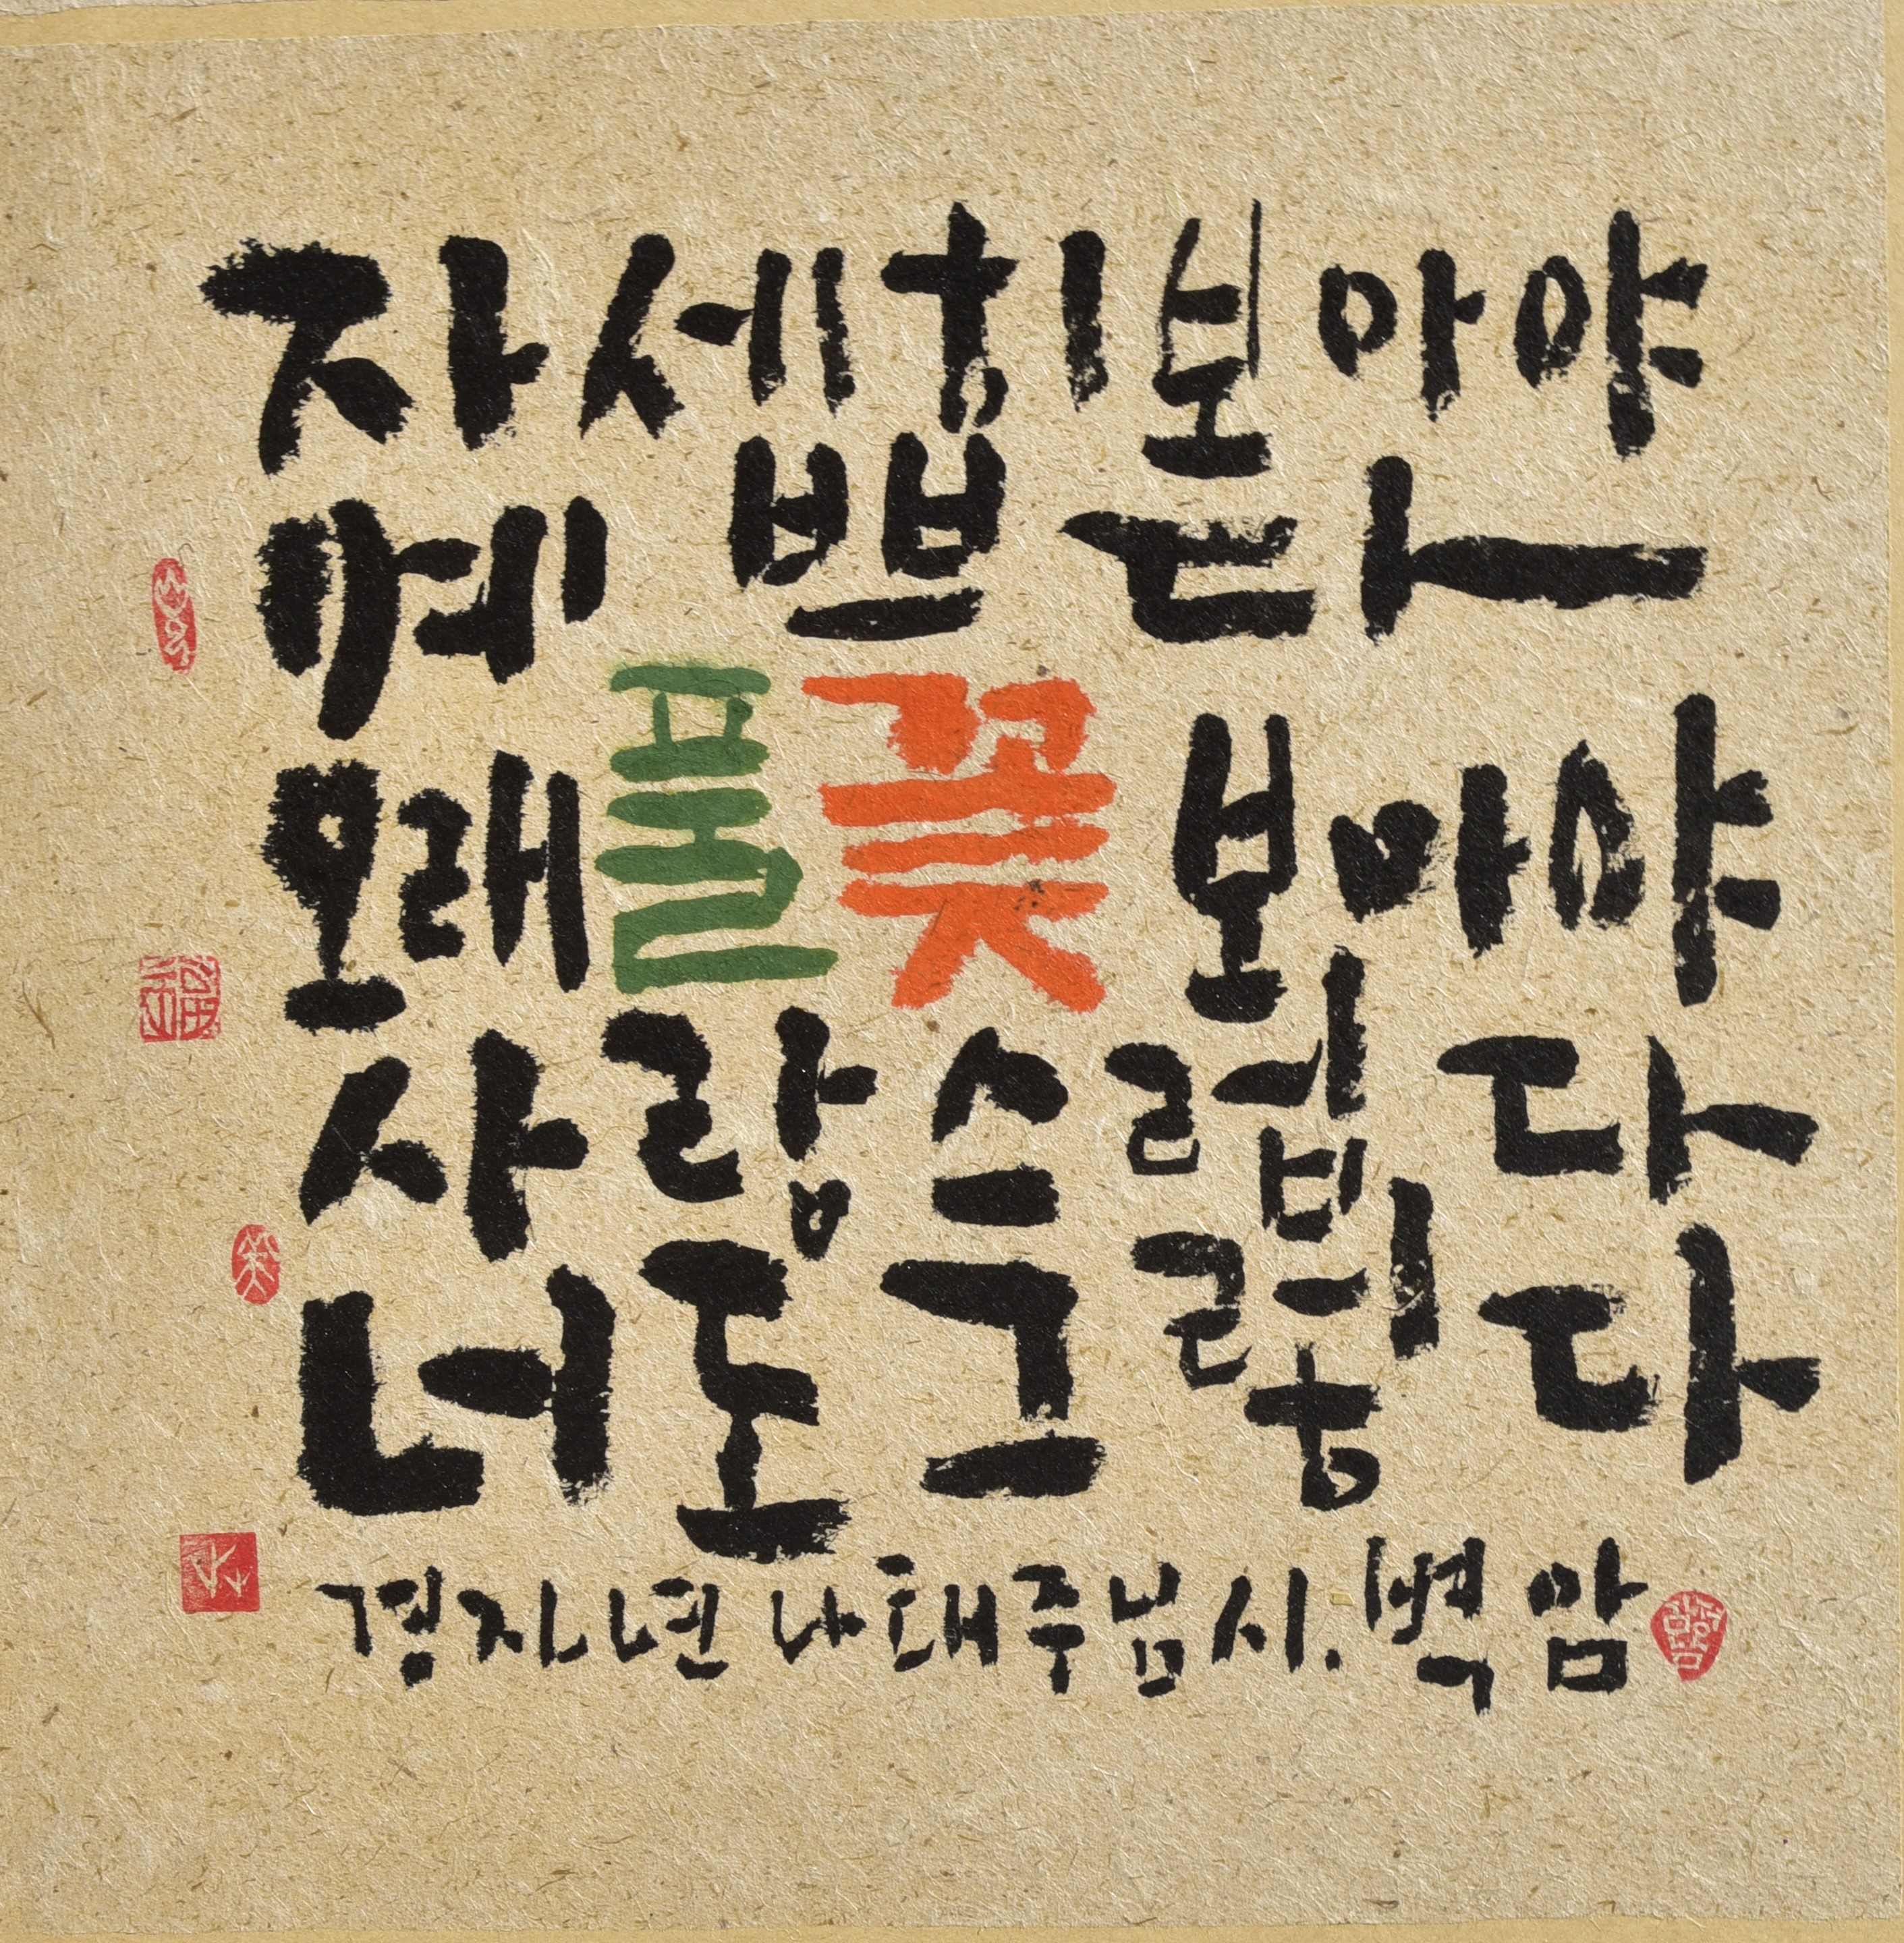 자세히 보아야
예쁘다
오래 풀꽃 보아야
사랑스럽다
너도 그렇다
경자년 나태주님 시. 벽암
福
笑